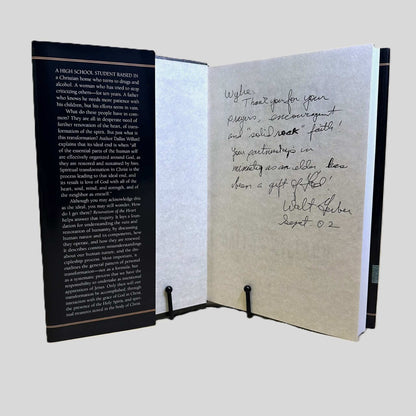 A HIGH SCHOOL STUDENT RAISED IN
a Christian home who turns to drugs and
alcohol. A woman who has tried to stop
criticizing others—for ten years. A father
who knows he needs more patience with
his children, but his efforts seem in vain.
What do these people have in com-
mon? They are all in desperate need of
further renovation of the heart, of trans-
formation of the spirit. But just what is
this transformation? Author Dallas Willard
explains that its ideal end is when "all
of the essential parts of the human self
are effectively organized around God, as
they are restored and sustained by him.
Spiritual transformation in Christ is the
process leading to that ideal end, and
its result is love of God with all of the
heart, soul, mind, and strength, and of
the neighbor as oneself."
Although you may acknowledge this
as the ideal, you may still wonder, How
do I get there? Renovation of the Heart
helps answer that inquiry. It lays a foun-
dation for understanding the ruin and
restoration of humanity, by discussing
human nature and its components, how
they operate, and how they are renewed.
It describes common misunderstandings
about our human nature, and the dis-
cipleship process. Most importantly, it
outlines the general pattern of personal
transformation—not as a formula, but
as a systematic process that we have the
responsibility to undertake as intentional
apprentices of Jesus. Only then will our
transformation be accomplished, through
interaction with the grace of God in Christ,
the presence of the Holy Spirit, and spiri-
tual treasures stored in the body of Christ.
Wylie,
Thank you for your
prayers, encouragement
and "solid rock" faith!
Your partnership in
ministry as an elder has
been a gift of God!
Walt
Sept 02